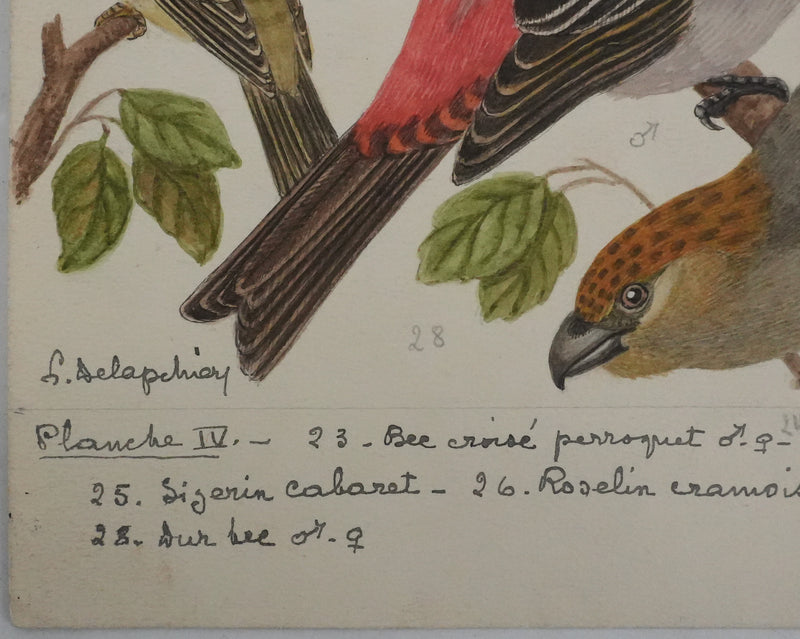 ♂
28
L. Delapchier
Planche IV. – 23 - Bec croisé perroquet ♂. ♀ –
25. Sizerin cabaret – 26. Roselin cramois
28. Dur bec ♂. ♀